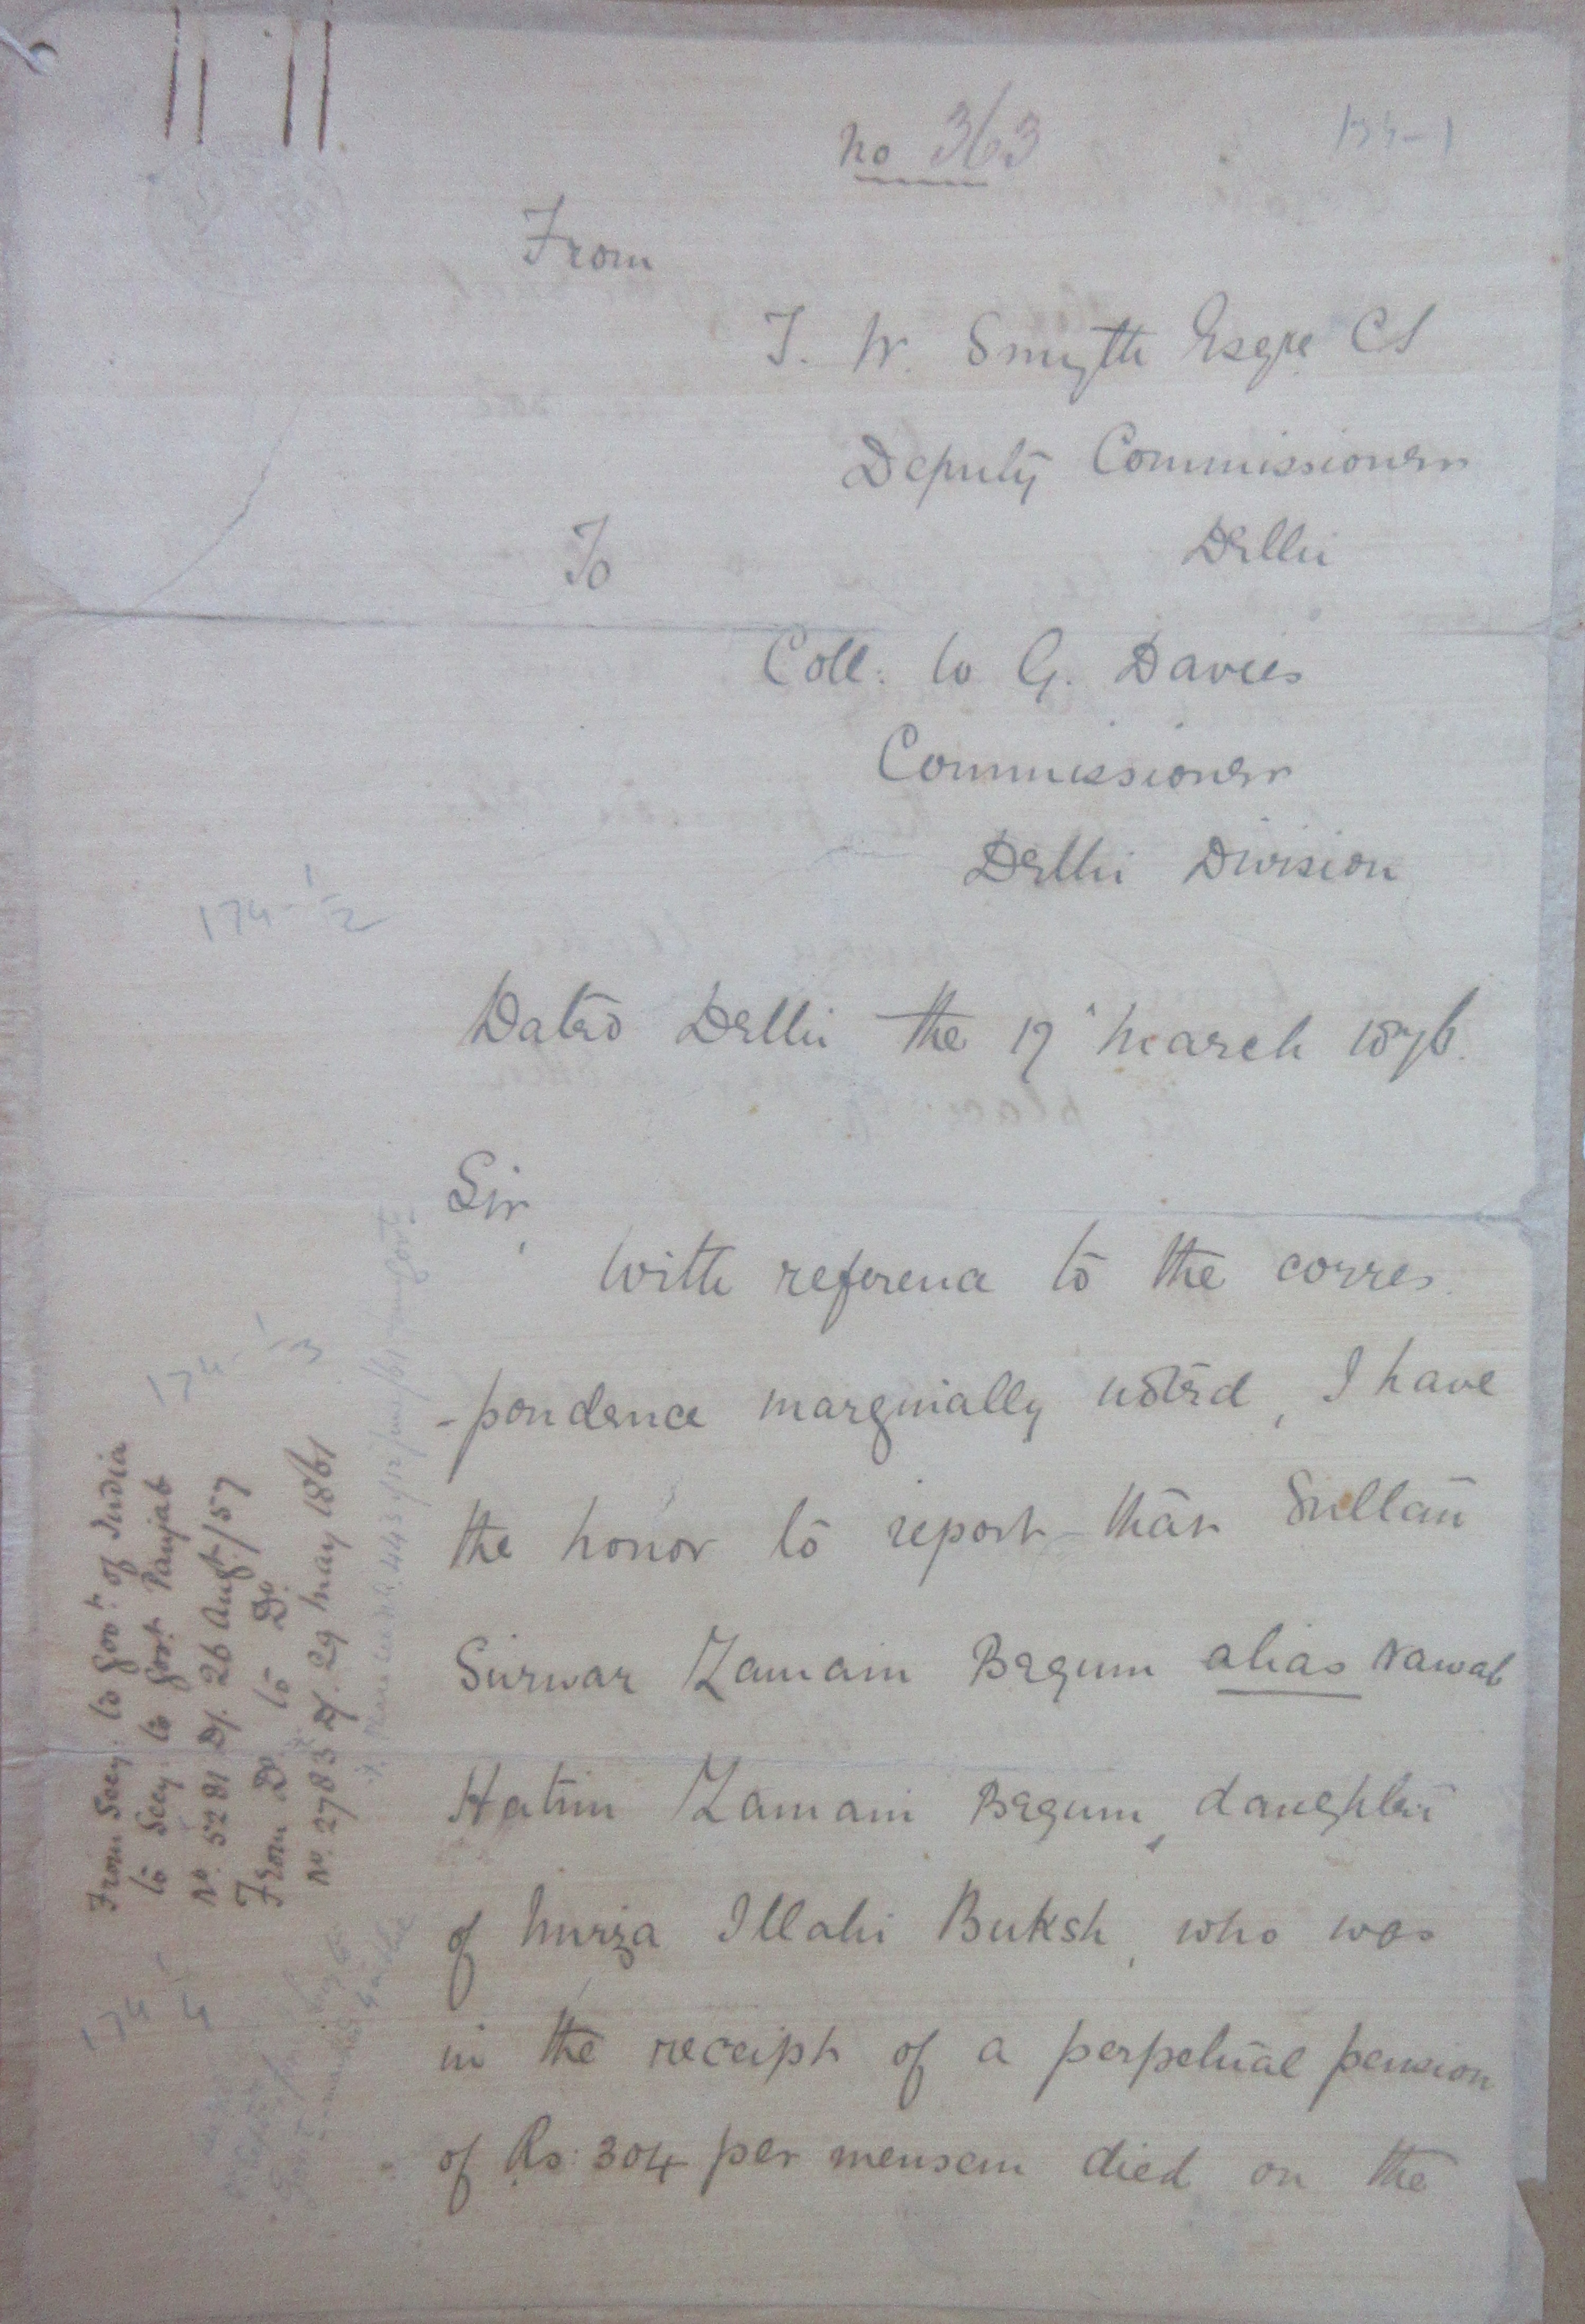 No 363
From
T. W. Smyth Esqre CS
Deputy Commissioner
Delhi
To
Coll: W G. Davies
Commissioner
Delhi Division
174 1/2
Dated Delhi the 17 March 1876.
Sir,
With reference to the corres
-pondence marginally noted, I have
the honor to report that Sultan
Surwar Zamani Begum alias Nawab
Hatim Zamani Begum, daughter
of Mirza Illahi Buksh, who was
in the receipt of a perpetual pension
of Rs: 304 per mensem died on the
174 1/3
From Secy: to Govt: of India
to Secy: to Govt Panjab
No. 5281 D/. 26 Augt/59
From Do to Do.
No. 2783 D/. 29 May 1861
174 1/4